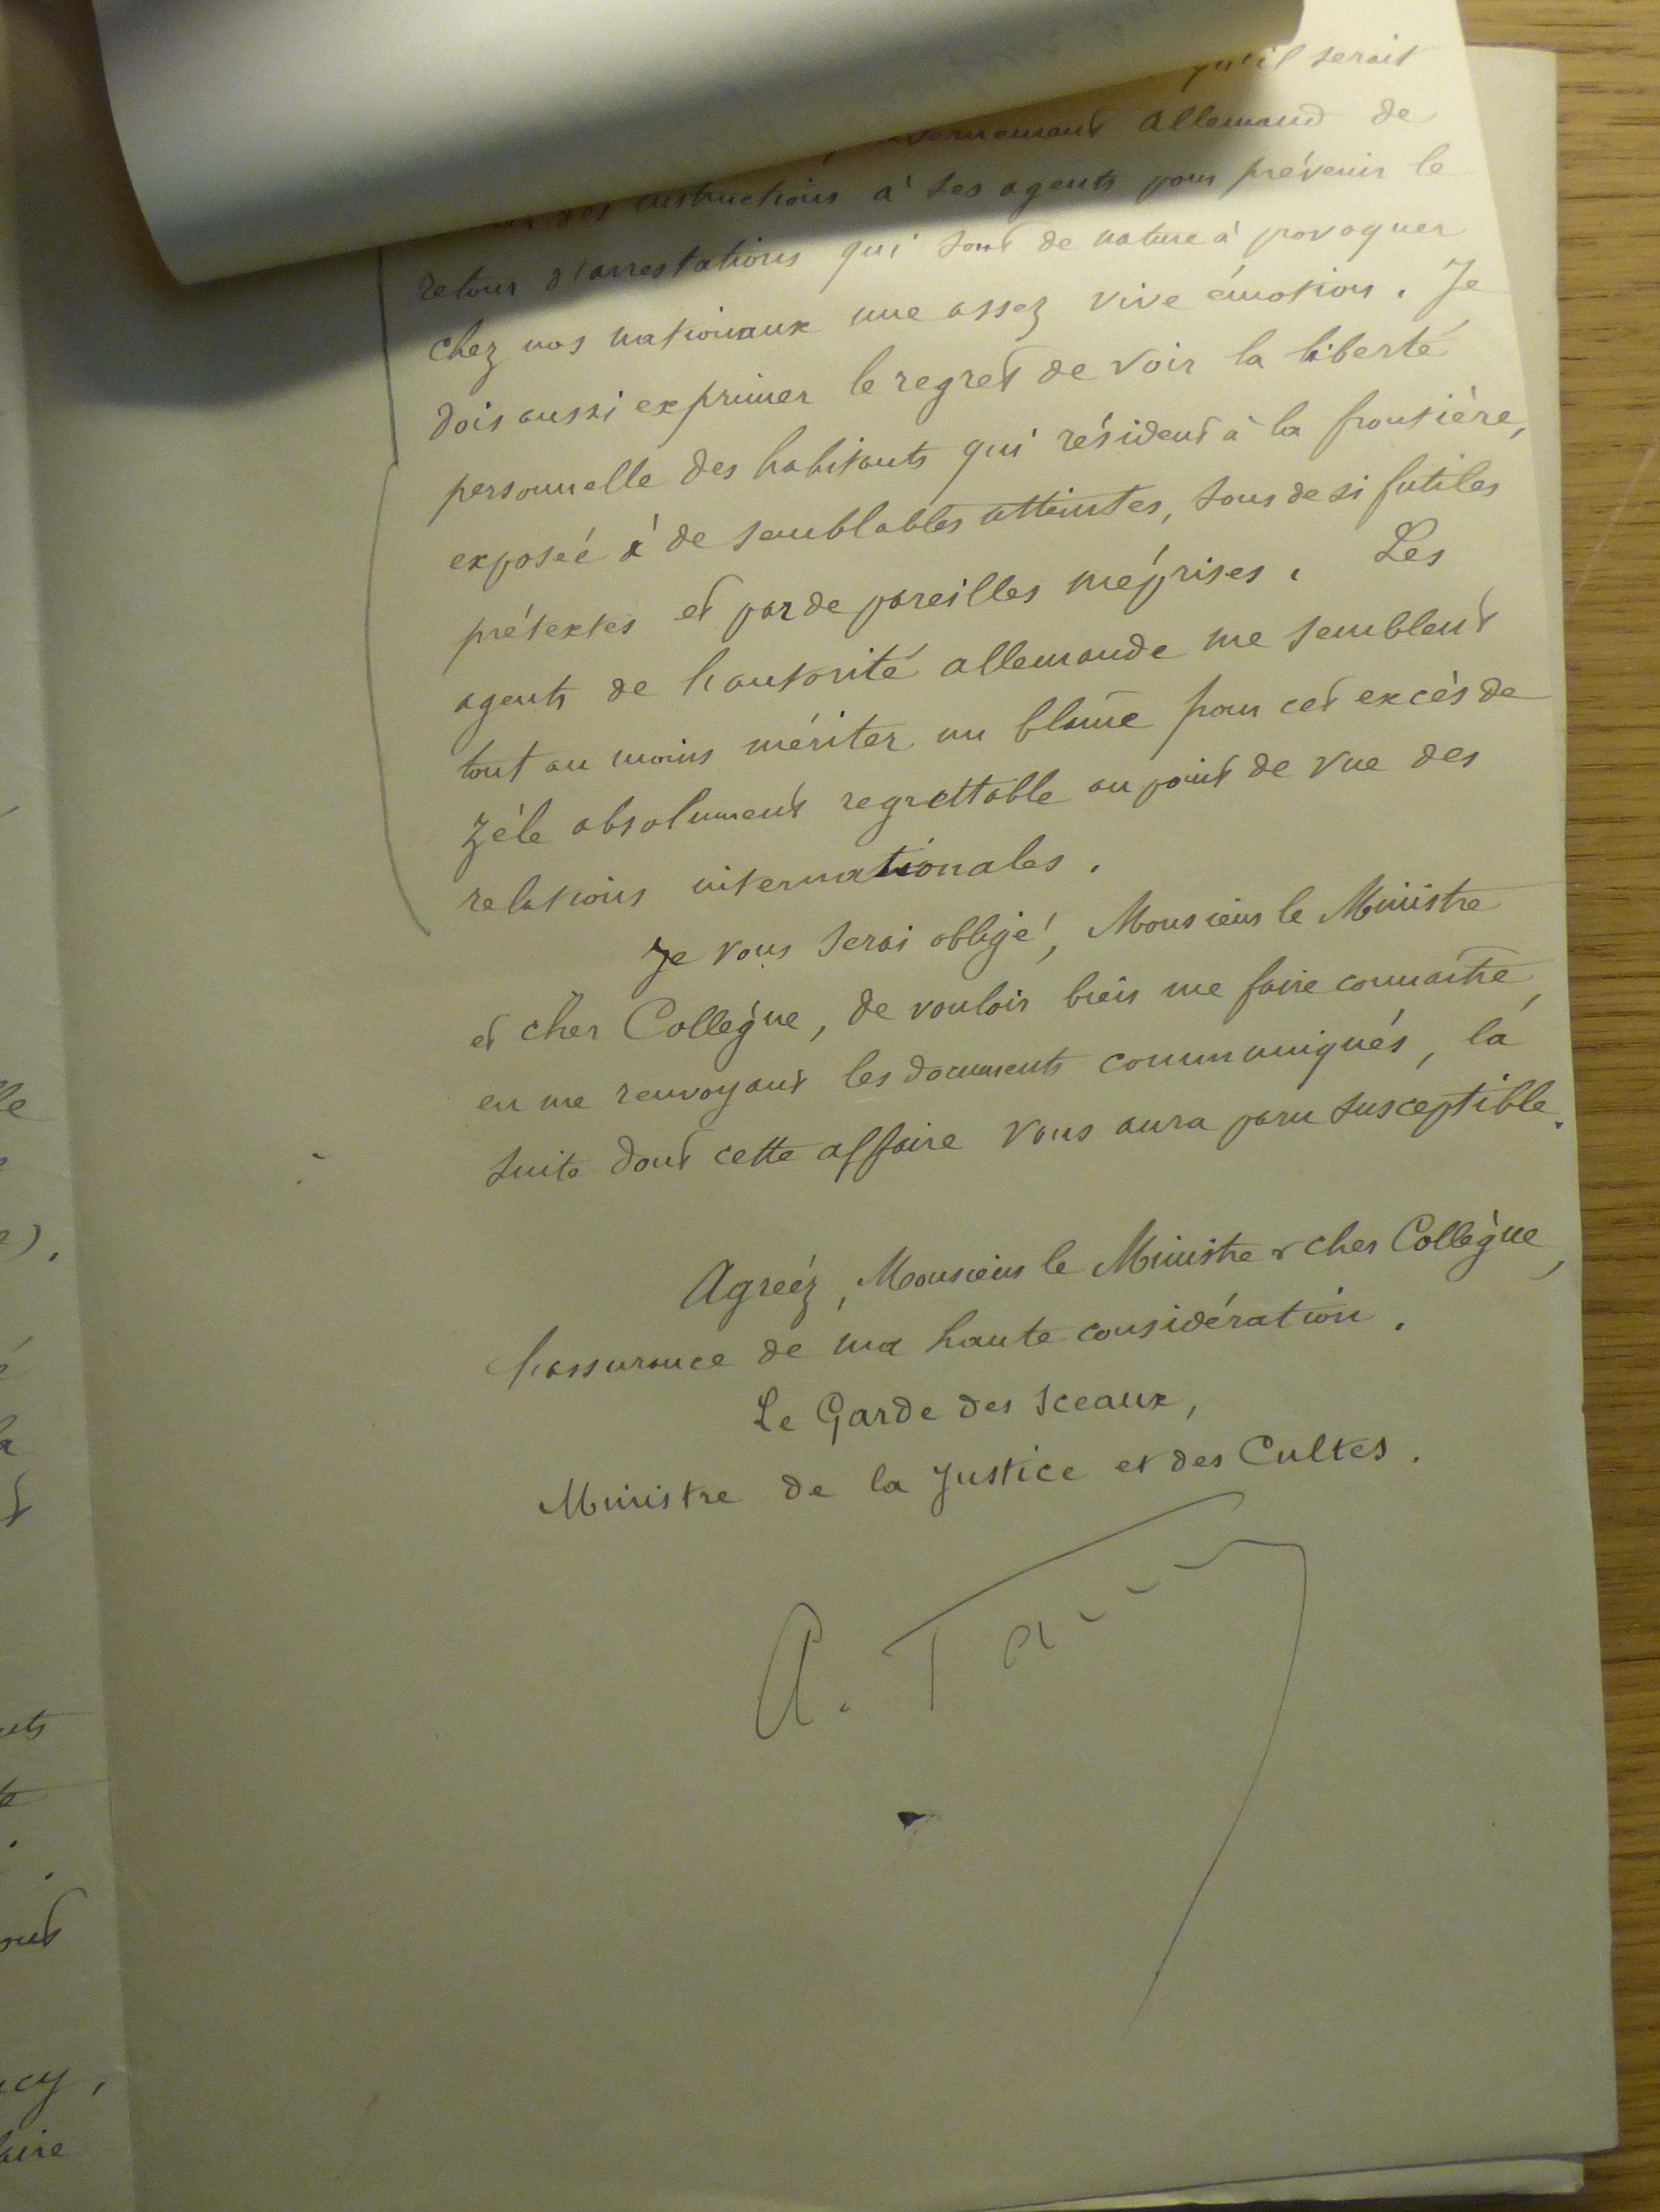 qu'il serait
allemand de
instructions à ses agents pour prévenir le
retour d'arrestations qui sont de nature à provoquer
chez nos nationaux une assez vive émotion. Je
dois aussi exprimer le regret de voir la liberté
personnelle des habitants qui résident à la frontière,
exposée à de semblables atteintes, sous de si futiles
prétextes et par de pareilles méprises. Les
agents de l'autorité allemande me semblent
tout au moins mériter un blâme pour cet excès de
zèle absolument regrettable au point de vue des
relations internationales.
Je vous serai obligé, Monsieur le Ministre
et cher Collègue, de vouloir bien me faire connaître,
en me renvoyant les documents communiqués, la
suite dont cette affaire vous aura paru susceptible.
Agréez, Monsieur le Ministre & cher Collègue,
l'assurance de ma haute considération.
Le Garde des Sceaux,
Ministre de la Justice et des Cultes.
A.